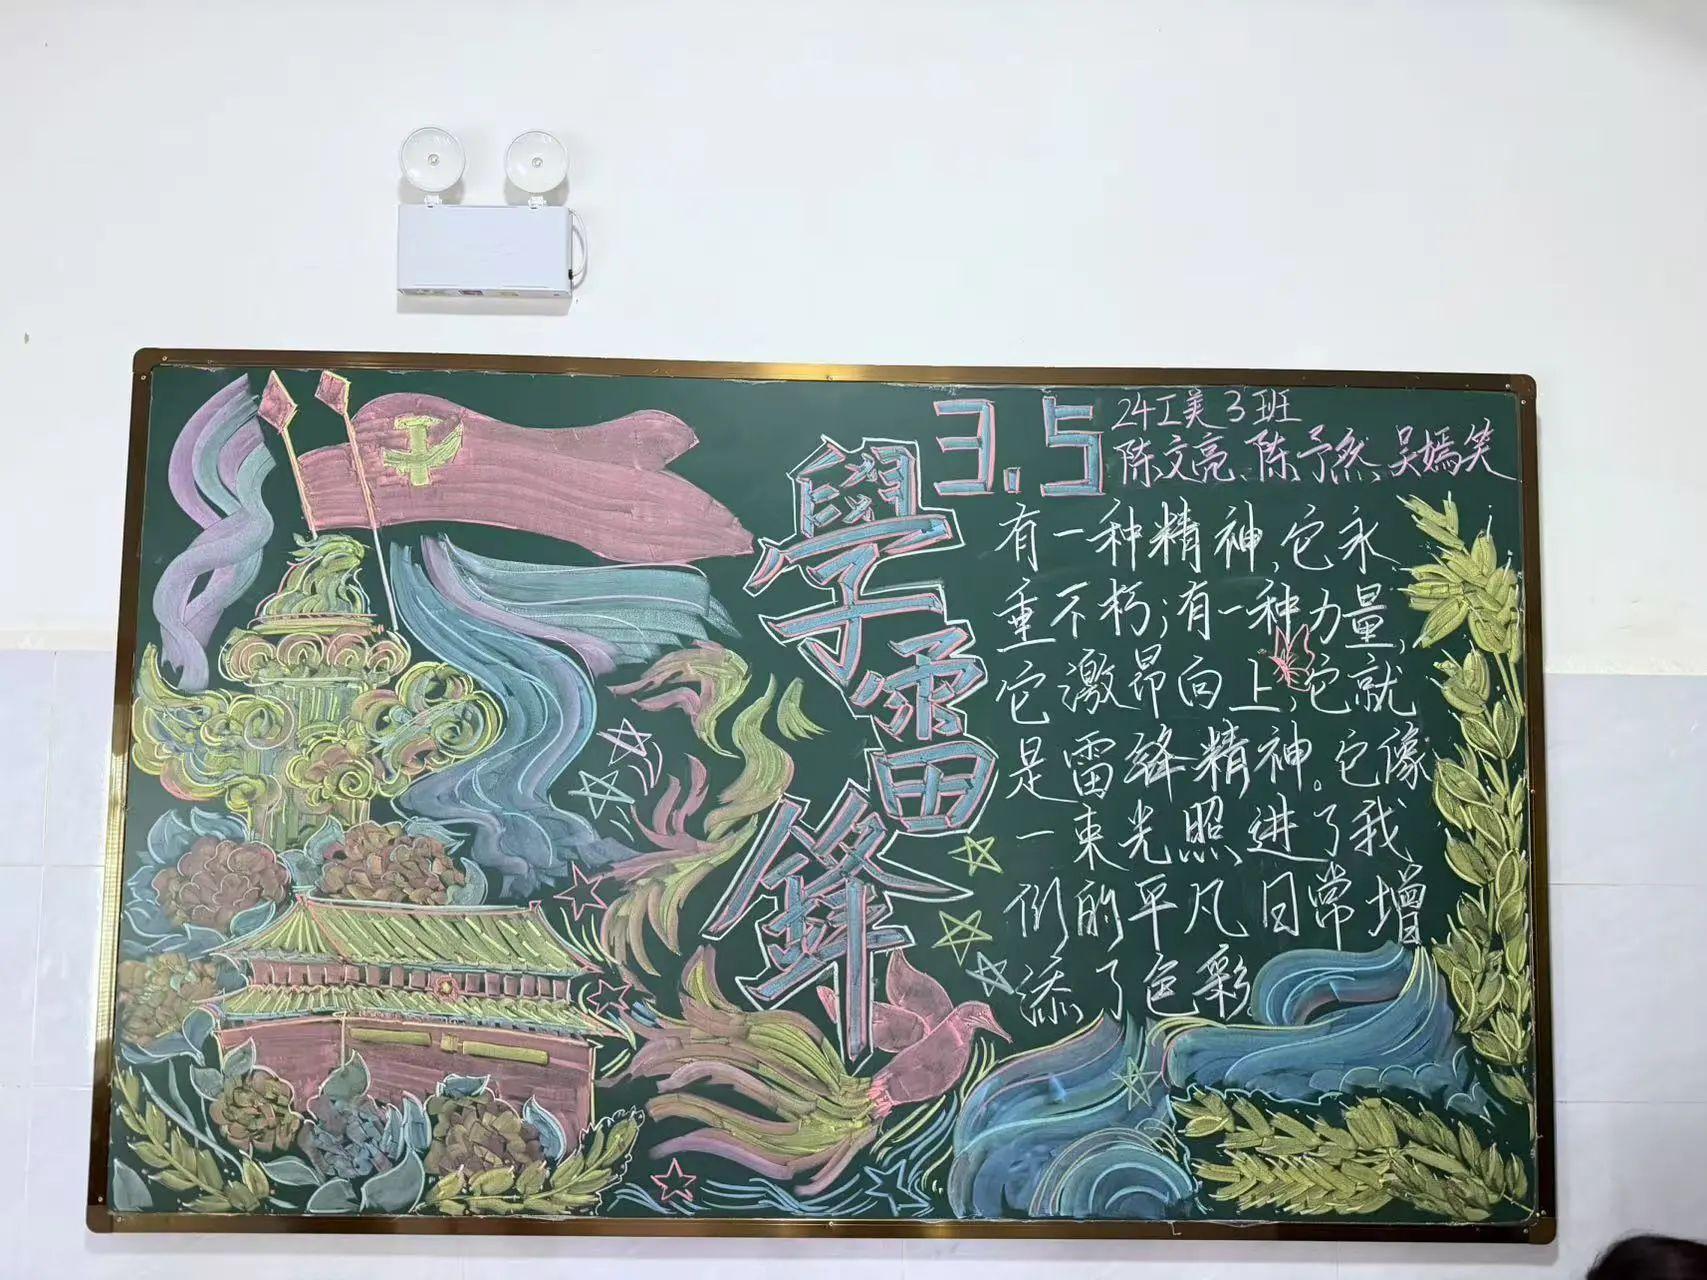 3.5
24工美3班
陈文亮、陈予然、吴嫣笑
學雷鋒
有一种精神,它永
重不朽;有一种力量,
它激昂向上,它就
是雷锋精神。它像
一束光照进了我
们的平凡日常增
添了色彩